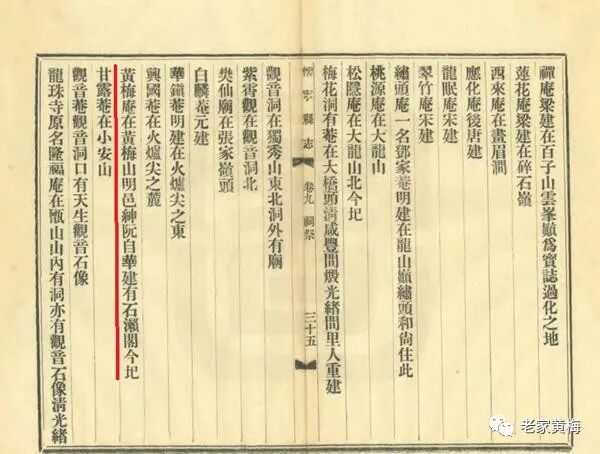 禪庵梁建在百子山雲峯巔爲寳誌過化之地
蓮花庵梁建在碎石嶺
西來庵在畫眉澗
應化庵後唐建
龍眠庵宋建
翠竹庵宋建
繡頭庵一名鄧家菴明建在龍山巔繡頭和尙住此
桃源庵在大龍山
松隱庵在大龍山北今圮
梅花洞有菴在大橋頭淸咸豐間燬光緖間里人重建
懷寧縣志
卷九
祠祭
三十五
觀音洞在獨秀山東北洞外有廟
紫霄觀在觀音洞北
樊仙廟在張家嶺頭
白麟菴元建
華鎮菴明建在火爐尖之東
興國菴在火爐尖之麓
黃梅庵在黃梅山明邑紳阮自華建有石瀨閣今圮
甘露菴在小安山
觀音菴觀音洞口有天生觀音石像
龍珠寺原名隆福庵在甑山山內有洞亦有觀音石像淸光緖
老家黄梅